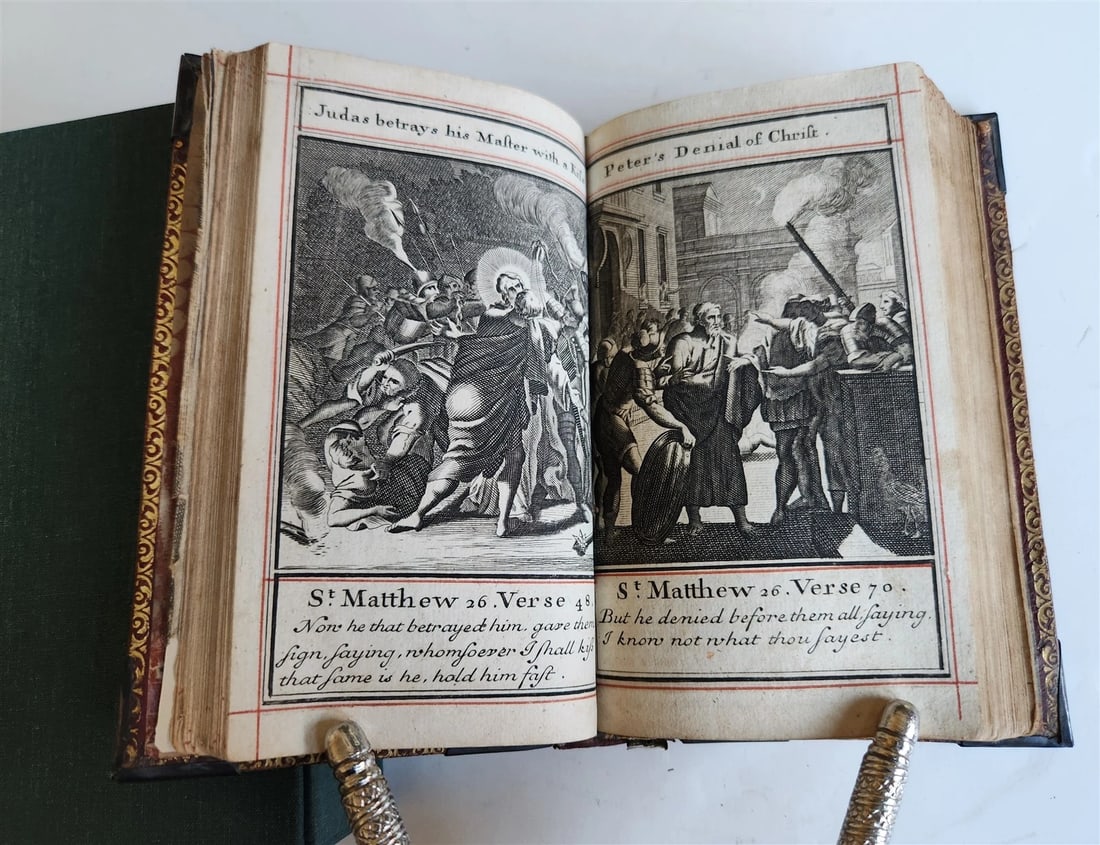 Judas betrays his Maſter with a
St. Matthew 26. Verse 48.
Now he that betrayed him, gave them
ſign, ſaying, whomſoever I ſhall kiſs
that ſame is he, hold him faſt.
Peter's Denial of Chriſt.
St. Matthew 26. Verse 70.
But he denied before them all, ſaying,
I know not what thou ſayest.